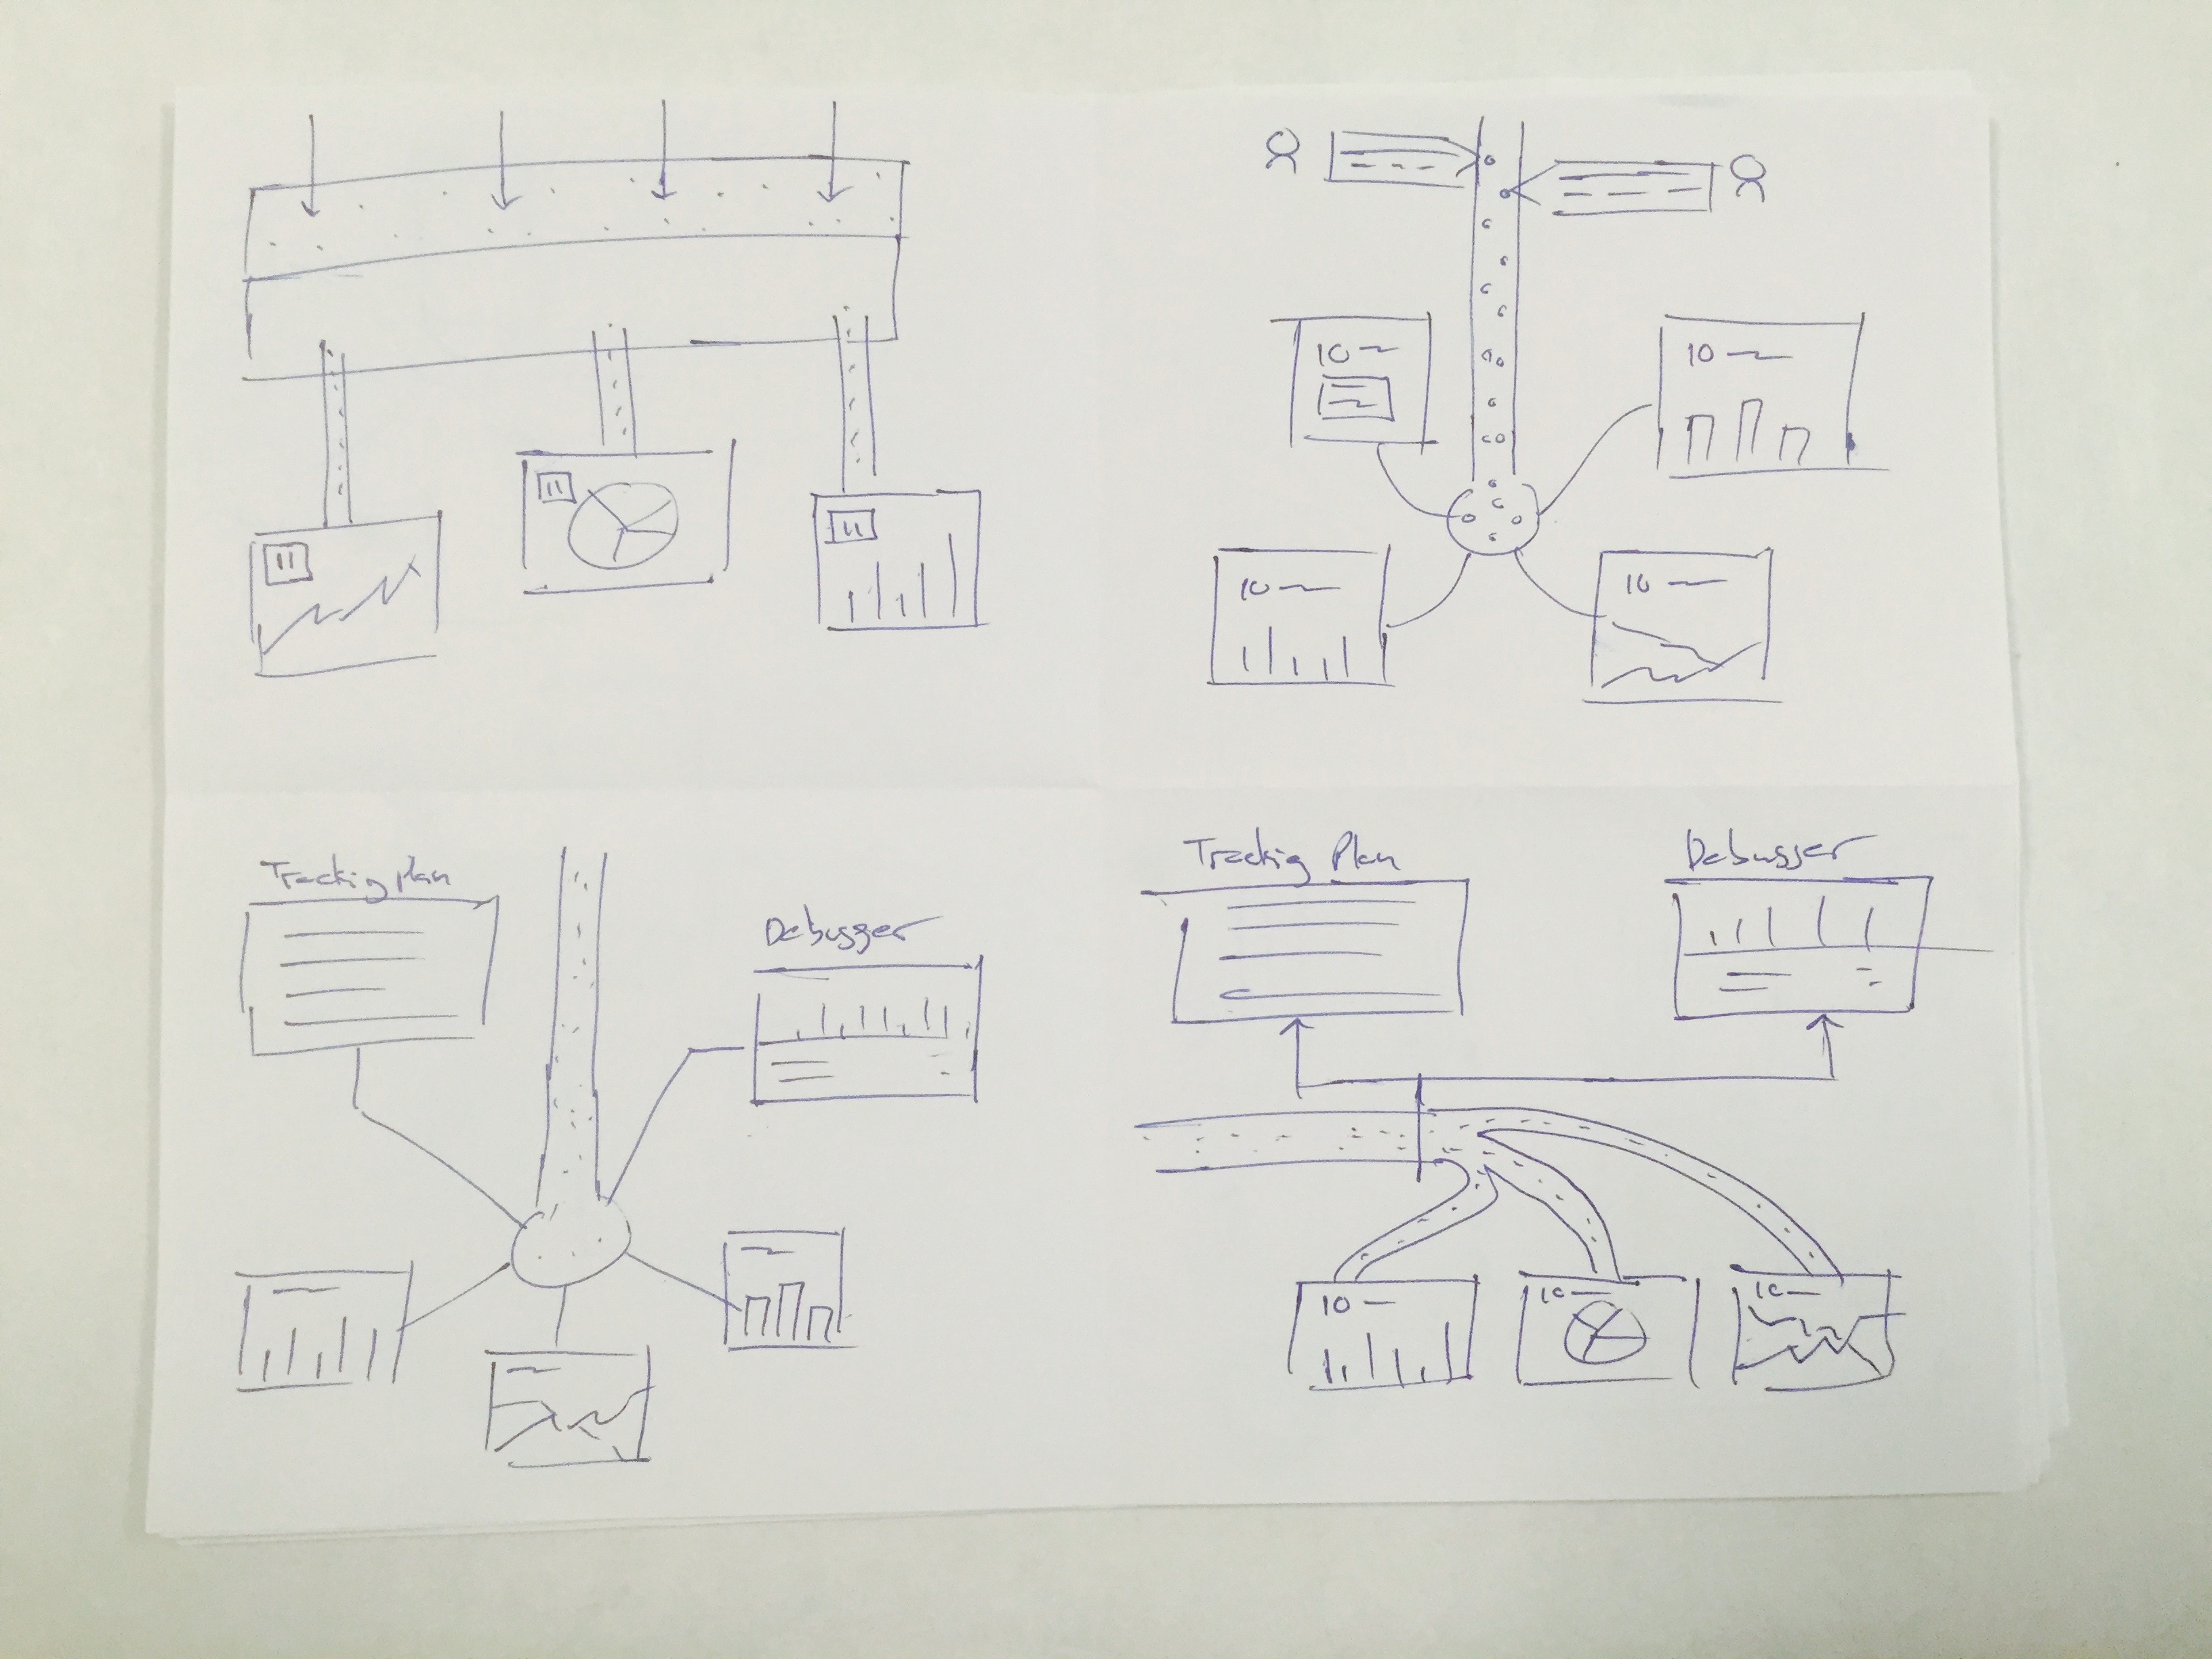 11
11
11
10
10
10
10
Trackig plan
Debugger
Trackig Plan
Debugger
10
10
10